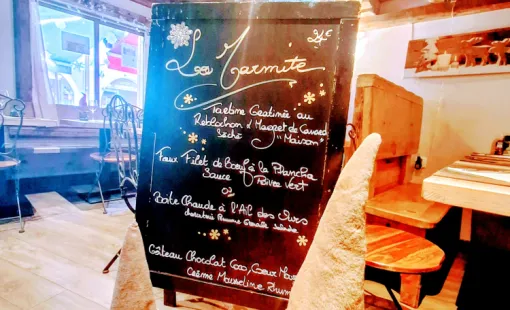 La Marmite
Tartine Gratinée au
Reblochon & Magret de Canard
Séché "Maison"
Faux Filet de boeuf à la Plancha
Sauce Poivre Vert
Ou
Boîte Chaude à l'Ail des Ours
Gâteau Chocolat Coco, Coeur
Crème Mousseline Rhum